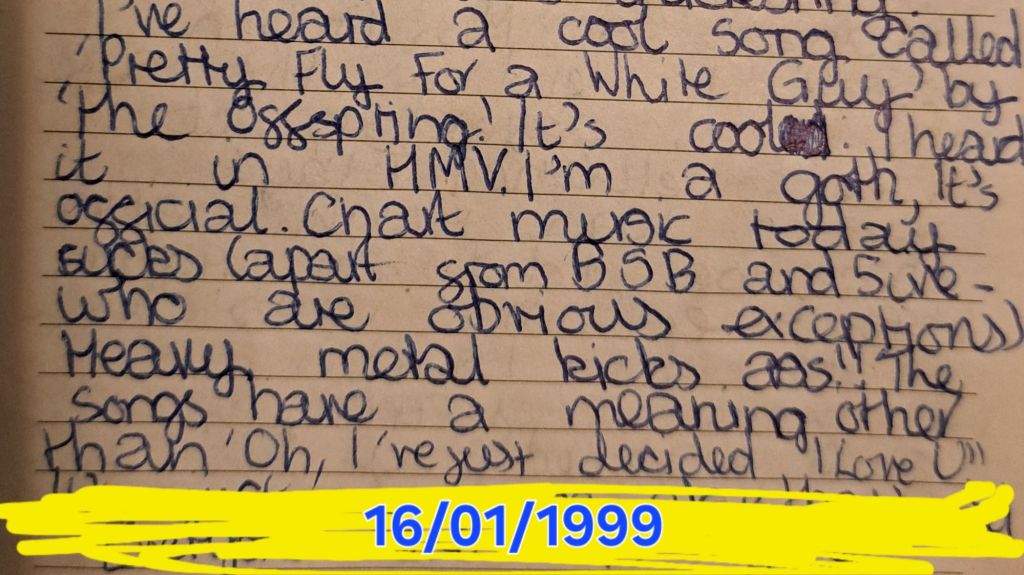 I've heard a cool song called
'Pretty Fly For a White Guy' by
'The Offspring.' It's cool. I heard
it in HMV. I'm a goth, It's
official. Chart music today
sucks (apart from BSB and 5ive -
who are obvious exceptions)
Heavy metal kicks ass!! The
songs have a meaning other
than 'Oh, I've just decided 'I Love U'''
16/01/1999